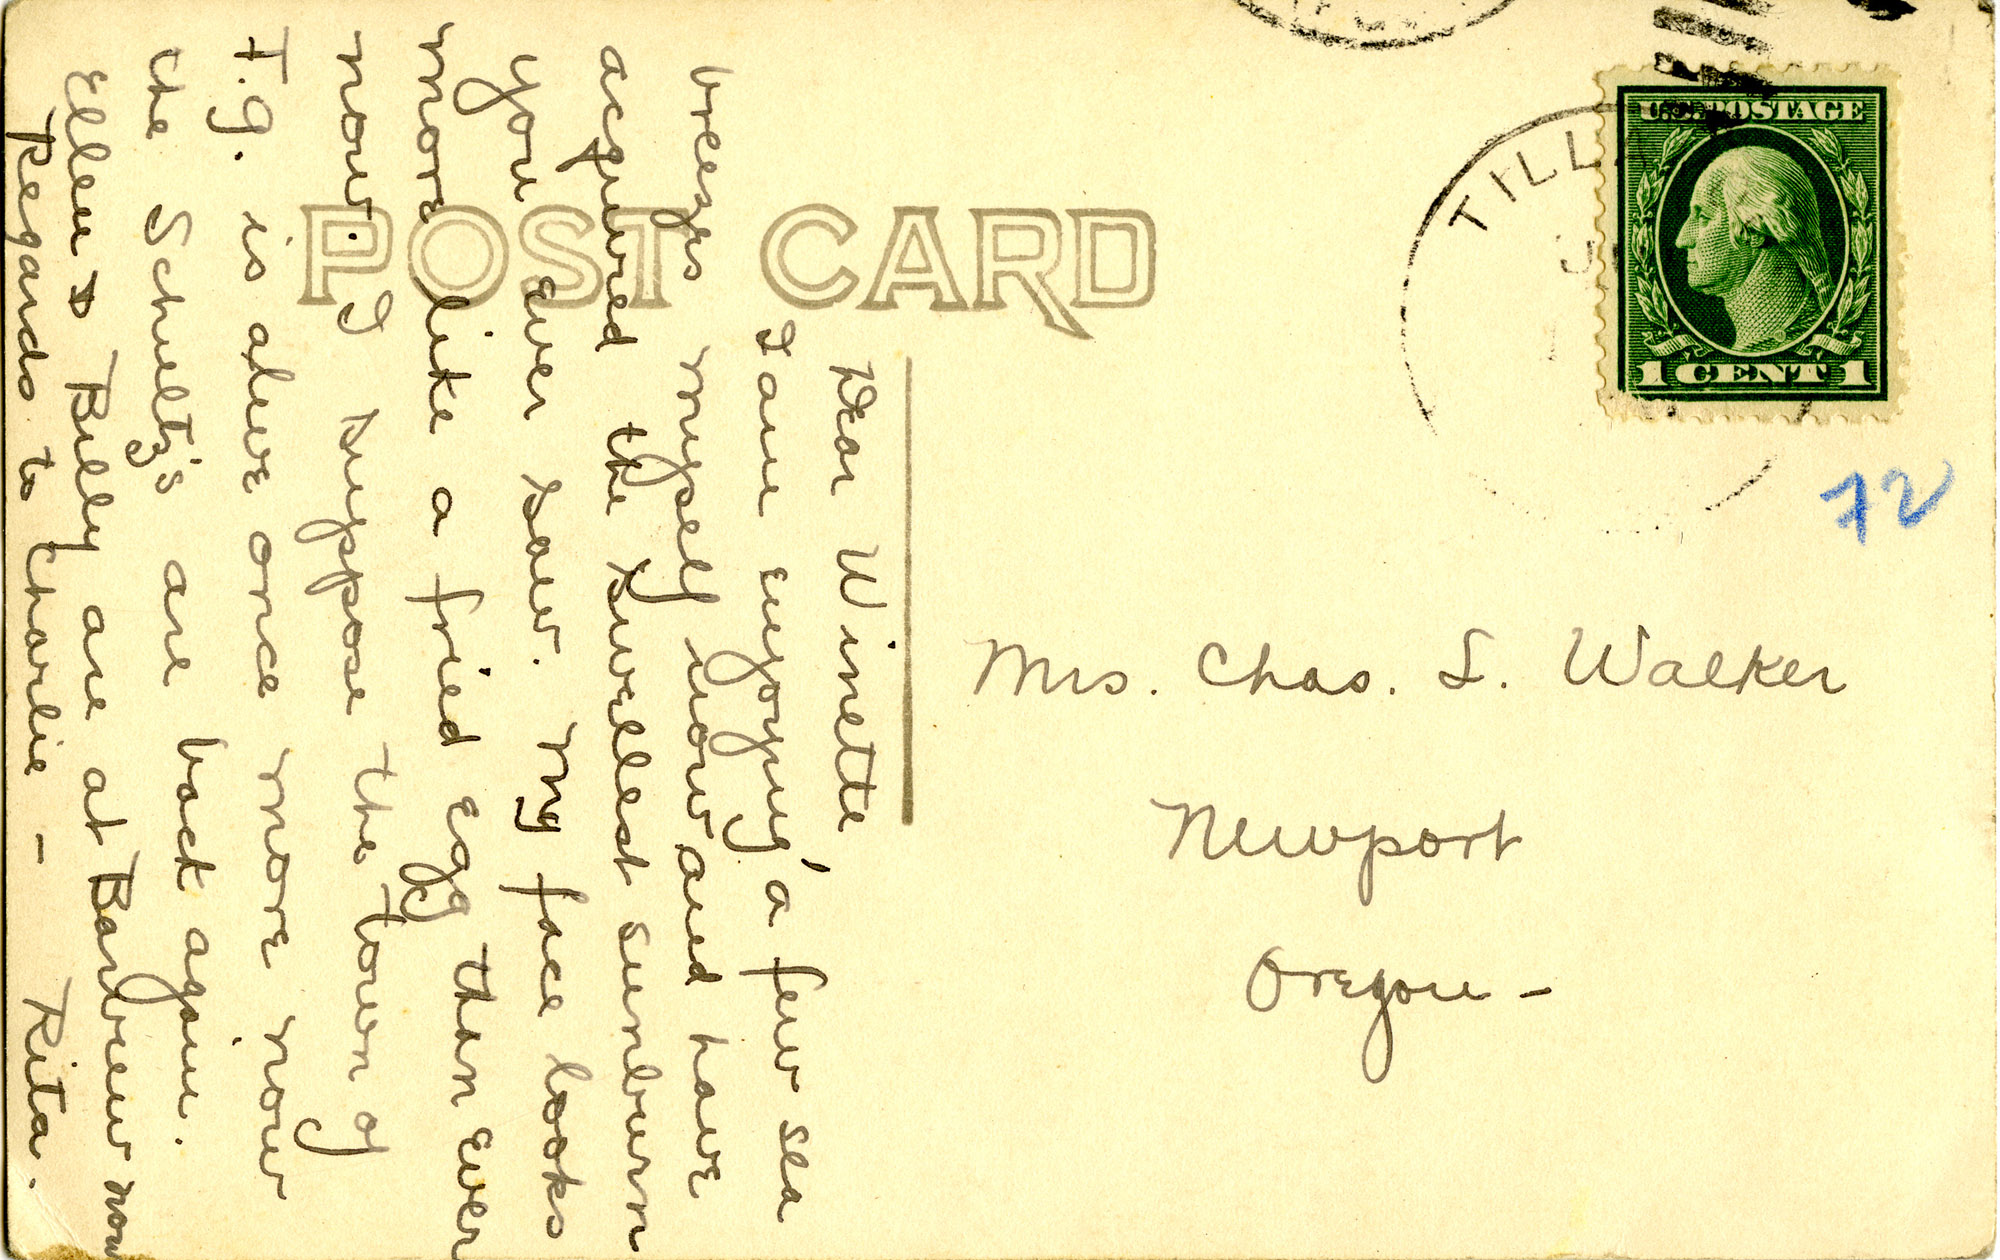 POST CARD
U.S. POSTAGE
1 CENT 1
TILL
72
Mrs. Chas. L. Walker
Newport
Oregon –
Dear Winette
I am enjoying a few sea
breezes myself now and have
acquired the swellest sunburn
you ever saw. My face looks
more like a fried egg than ever
now. I suppose the town of
T.G. is alive once more now
the Schultz's are back again.
Ellen & Billy are at Barview now
Regards to Charlie – Rita.